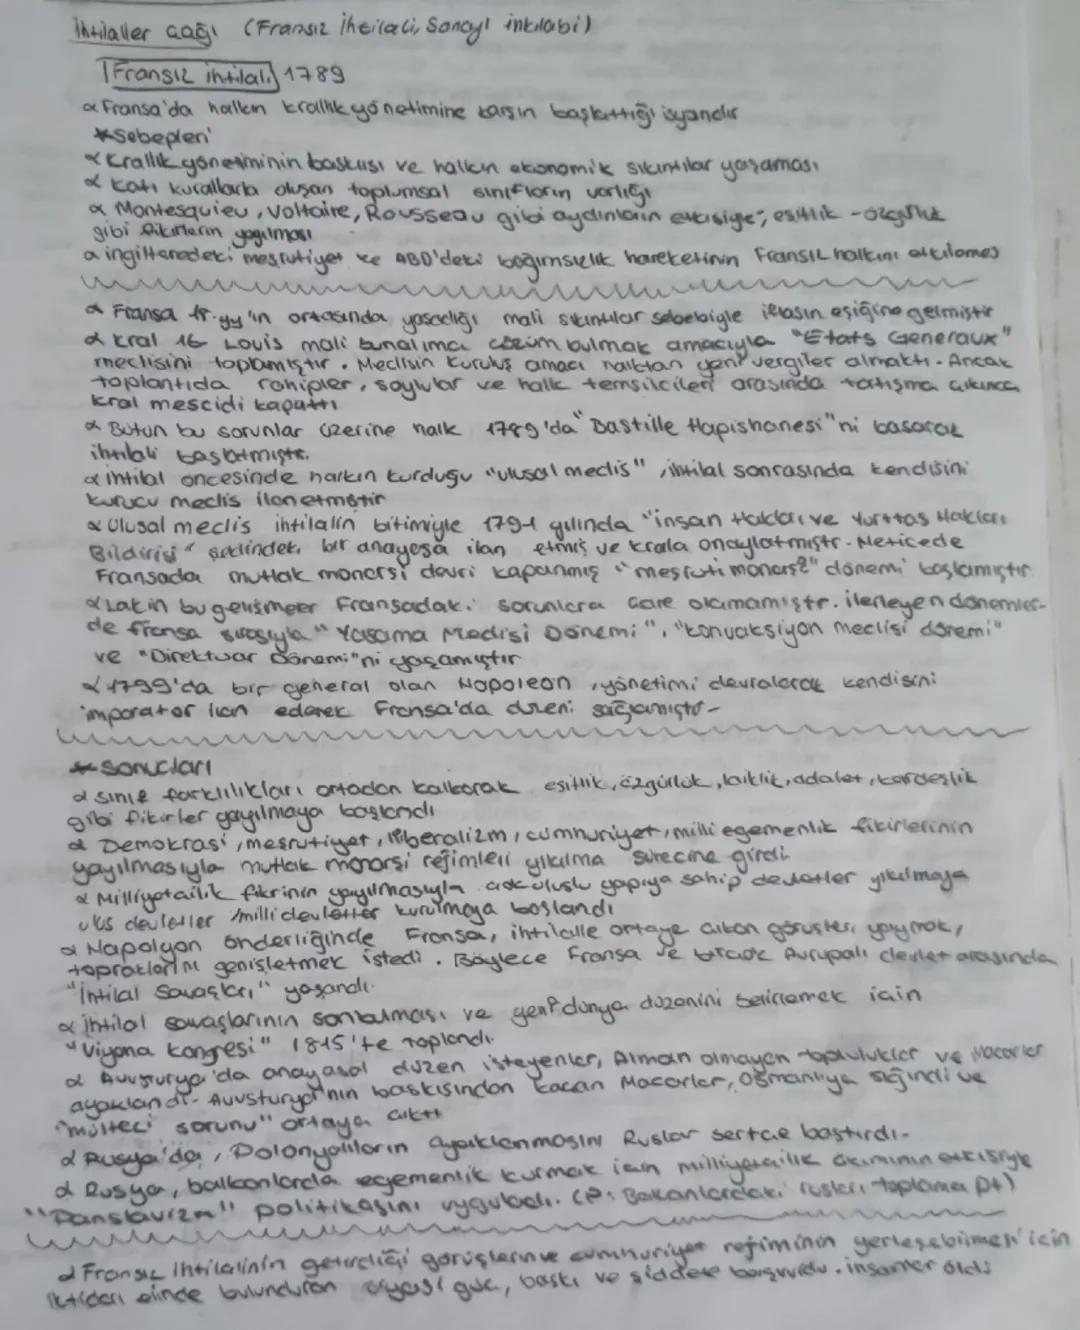 ihtilaller çağı (Fransız ihtilali, Sanayi inkılabı)
Fransız ihtilali 1789
α Fransa'da halkın krallık yönetimine karşın başlattığı isyandır
* Sebepleri
α Krallık yönetiminin baskısı ve halkın ekonomik sıkıntılar yaşaması
α katı kurallarla oluşan toplumsal sınıfların varlığı
α Montesquieu, Voltaire, Rousseau gibi aydınların etkisiyle; eşitlik - özgürlük
gibi fikirlerin yayılması
α ingilteredeki meşrutiyet ve ABD'deki bağımsızlık hareketinin Fransız halkını etkilemes
α Fransa 18.yy'ın ortasında yaşadığı mali sıkıntılar sebebiyle iflasın eşiğine gelmiştir
α kral 16 Louis mali bunalıma çözüm bulmak amacıyla "Etats Generaux"
meclisini toplamıştır. Meclisin kuruluş amacı halktan yeni vergiler almaktı. Ancak
toplantıda rahipler, soylular ve halk temsilcileri arasında tartışma çıkınca
kral mescidi kapattı
α Bütün bu sorunlar üzerine halk 1789'da "Bastille Hapishanesi"ni basarak
ihtilali başlatmıştır.
α ihtilal öncesinde halkın kurduğu "ulusal meclis", ihtilal sonrasında kendisini
kurucu meclis ilan etmiştir
α Ulusal meclis ihtilalin bitimiyle 1791 yılında "insan Hakları ve Yurttaş Hakları
Bildirisi" şeklindeki bir anayasa ilan etmiş ve krala onaylatmıştır. Neticede
Fransada mutlak monarşi devri kapanmış "meşruti monarşi" dönemi başlamıştır
α Lakin bu gelişmeler Fransadaki sorunlara çare olamamıştır. ilerleyen dönemler-
de fransa sırasıyla "Yasama Meclisi Dönemi", "konvaksiyon meclisi dönemi"
ve "Direktuar Dönemi"ni yaşamıştır
α 1799'da bir general olan Napoleon, yönetimi devralarak kendisini
imparator ilan ederek Fransa'da düzeni sağlamıştır -
* sonuçları
α sınıf farklılıkları ortadan kalkarak eşitlik, özgürlük, laiklik, adalet, kardeşlik
gibi fikirler yayılmaya başlandı
α Demokrasi, meşrutiyet, liberalizm, cumhuriyet, milli egemenlik fikirlerinin
yayılmasıyla mutlak monarşi rejimleri yıkılma sürecine girdi
α Milliyetçilik fikrinin yayılmasıyla çok uluslu yapıya sahip devletler yıkılmaya
ulus devletler /milli devletler kurulmaya başlandı
α Napolyon önderliğinde Fransa, ihtilalle ortaya çıkan görüşleri yaymak,
topraklarını genişletmek istedi. Böylece Fransa ve birçok Avrupalı devlet arasında
"İhtilal Savaşları" yaşandı.
α ihtilal savaşlarının son bulması ve yeni dünya düzenini belirlemek için
"Viyana kongresi" 1815'te toplandı.
α Avusturya'da anayasal düzen isteyenler, Alman olmayan topluluklar ve Macarlar
ayaklandı. Avusturya'nın baskısından kaçan Macarlar, Osmanlıya sığındı ve
"mülteci sorunu" ortaya çıktı
α Rusya'da, Polonyalıların ayaklanmasını Ruslar sertçe bastırdı.
α Rusya, balkanlarda egemenlik kurmak için milliyetçilik akımının etkisiyle
"Panslavizm" politikasını uyguladı. (P: Balkanlardaki rusları toplama pt)
α Fransız ihtilalinin getirdiği görüşlerin ve cumhuriyet rejiminin yerleşebilmesi için
iktidarı elinde bulunduran siyasi güç, baskı ve şiddete başvurdu. insanlar öldü